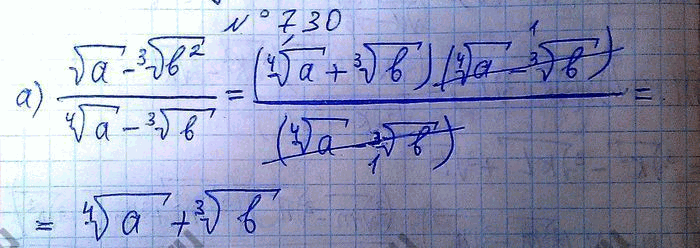 № 730
а) (√a - ³√b²)/(⁴√a - ³√b) = ((⁴√a + ³√b)(⁴√a - ³√b))/((⁴√a - ³√b)) =
= ⁴√a + ³√b